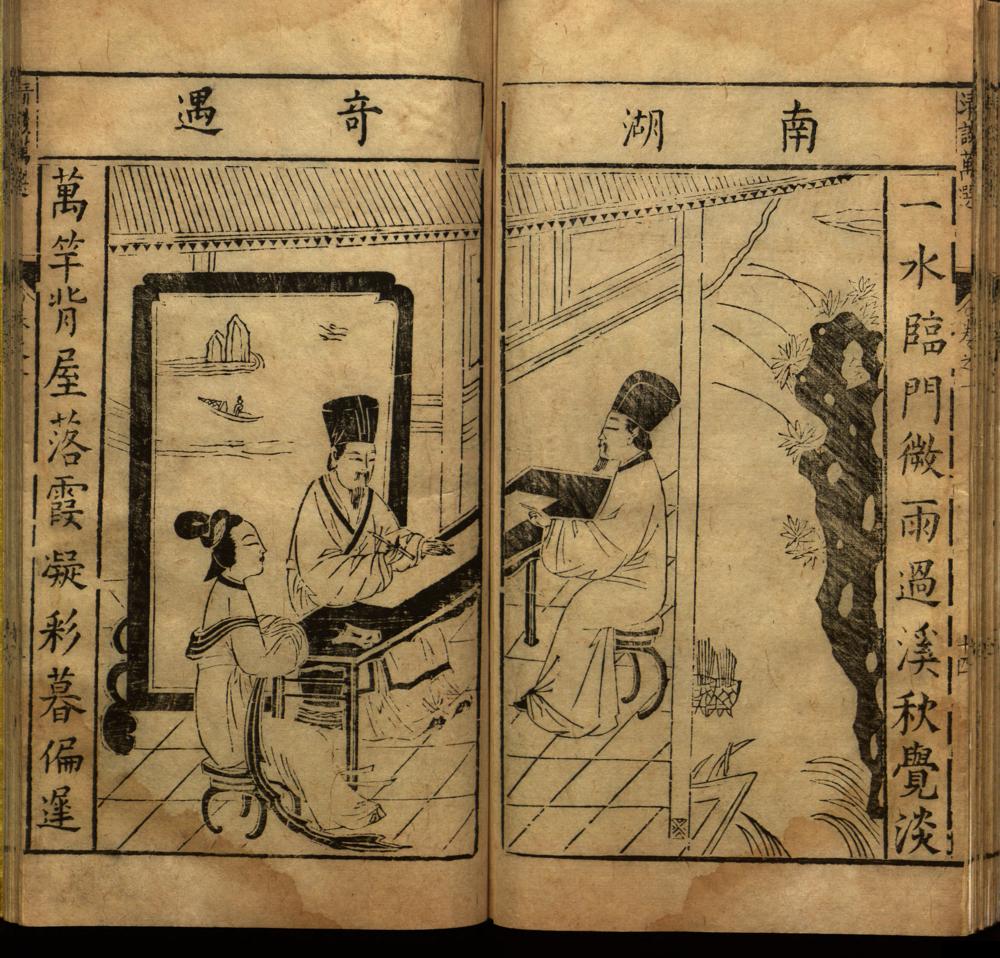 南湖
奇遇
一水臨門微雨過溪秋覺淡
萬竿背屋落霞凝彩暮偏遲